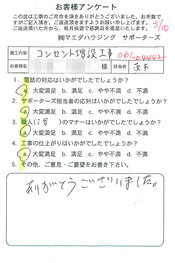 お客様アンケート
この度は工事のご用命を頂きありがとうございました。お手数で
すがご記入頂き、ご返送頂きますようお願いいたします。ご返
送頂いた方から、毎月抽選で感謝品を進呈いたします。
㈱マエダハウジング サポーターズ
施工内容 コンセント増設工事
様 担当者
1. 電話の対応はいかがでしたでしょうか？
a 大変満足 b. 満足 c. やや不満 d. 不満
2. サポーターズ担当者の対応はいかがでしたでしょうか？
a 大変満足 b. 満足 c. やや不満 d. 不満
3. 職人( )のマナーはいかがでしたでしょうか？
a 大変満足 b. 満足 c. やや不満 d. 不満
4. 工事の仕上がりはいかがでしたでしょうか？
a 大変満足 b. 満足 c. やや不満 d. 不満
5. その他、ご意見・ご要望をお書き下さい。
ありがとうございました。